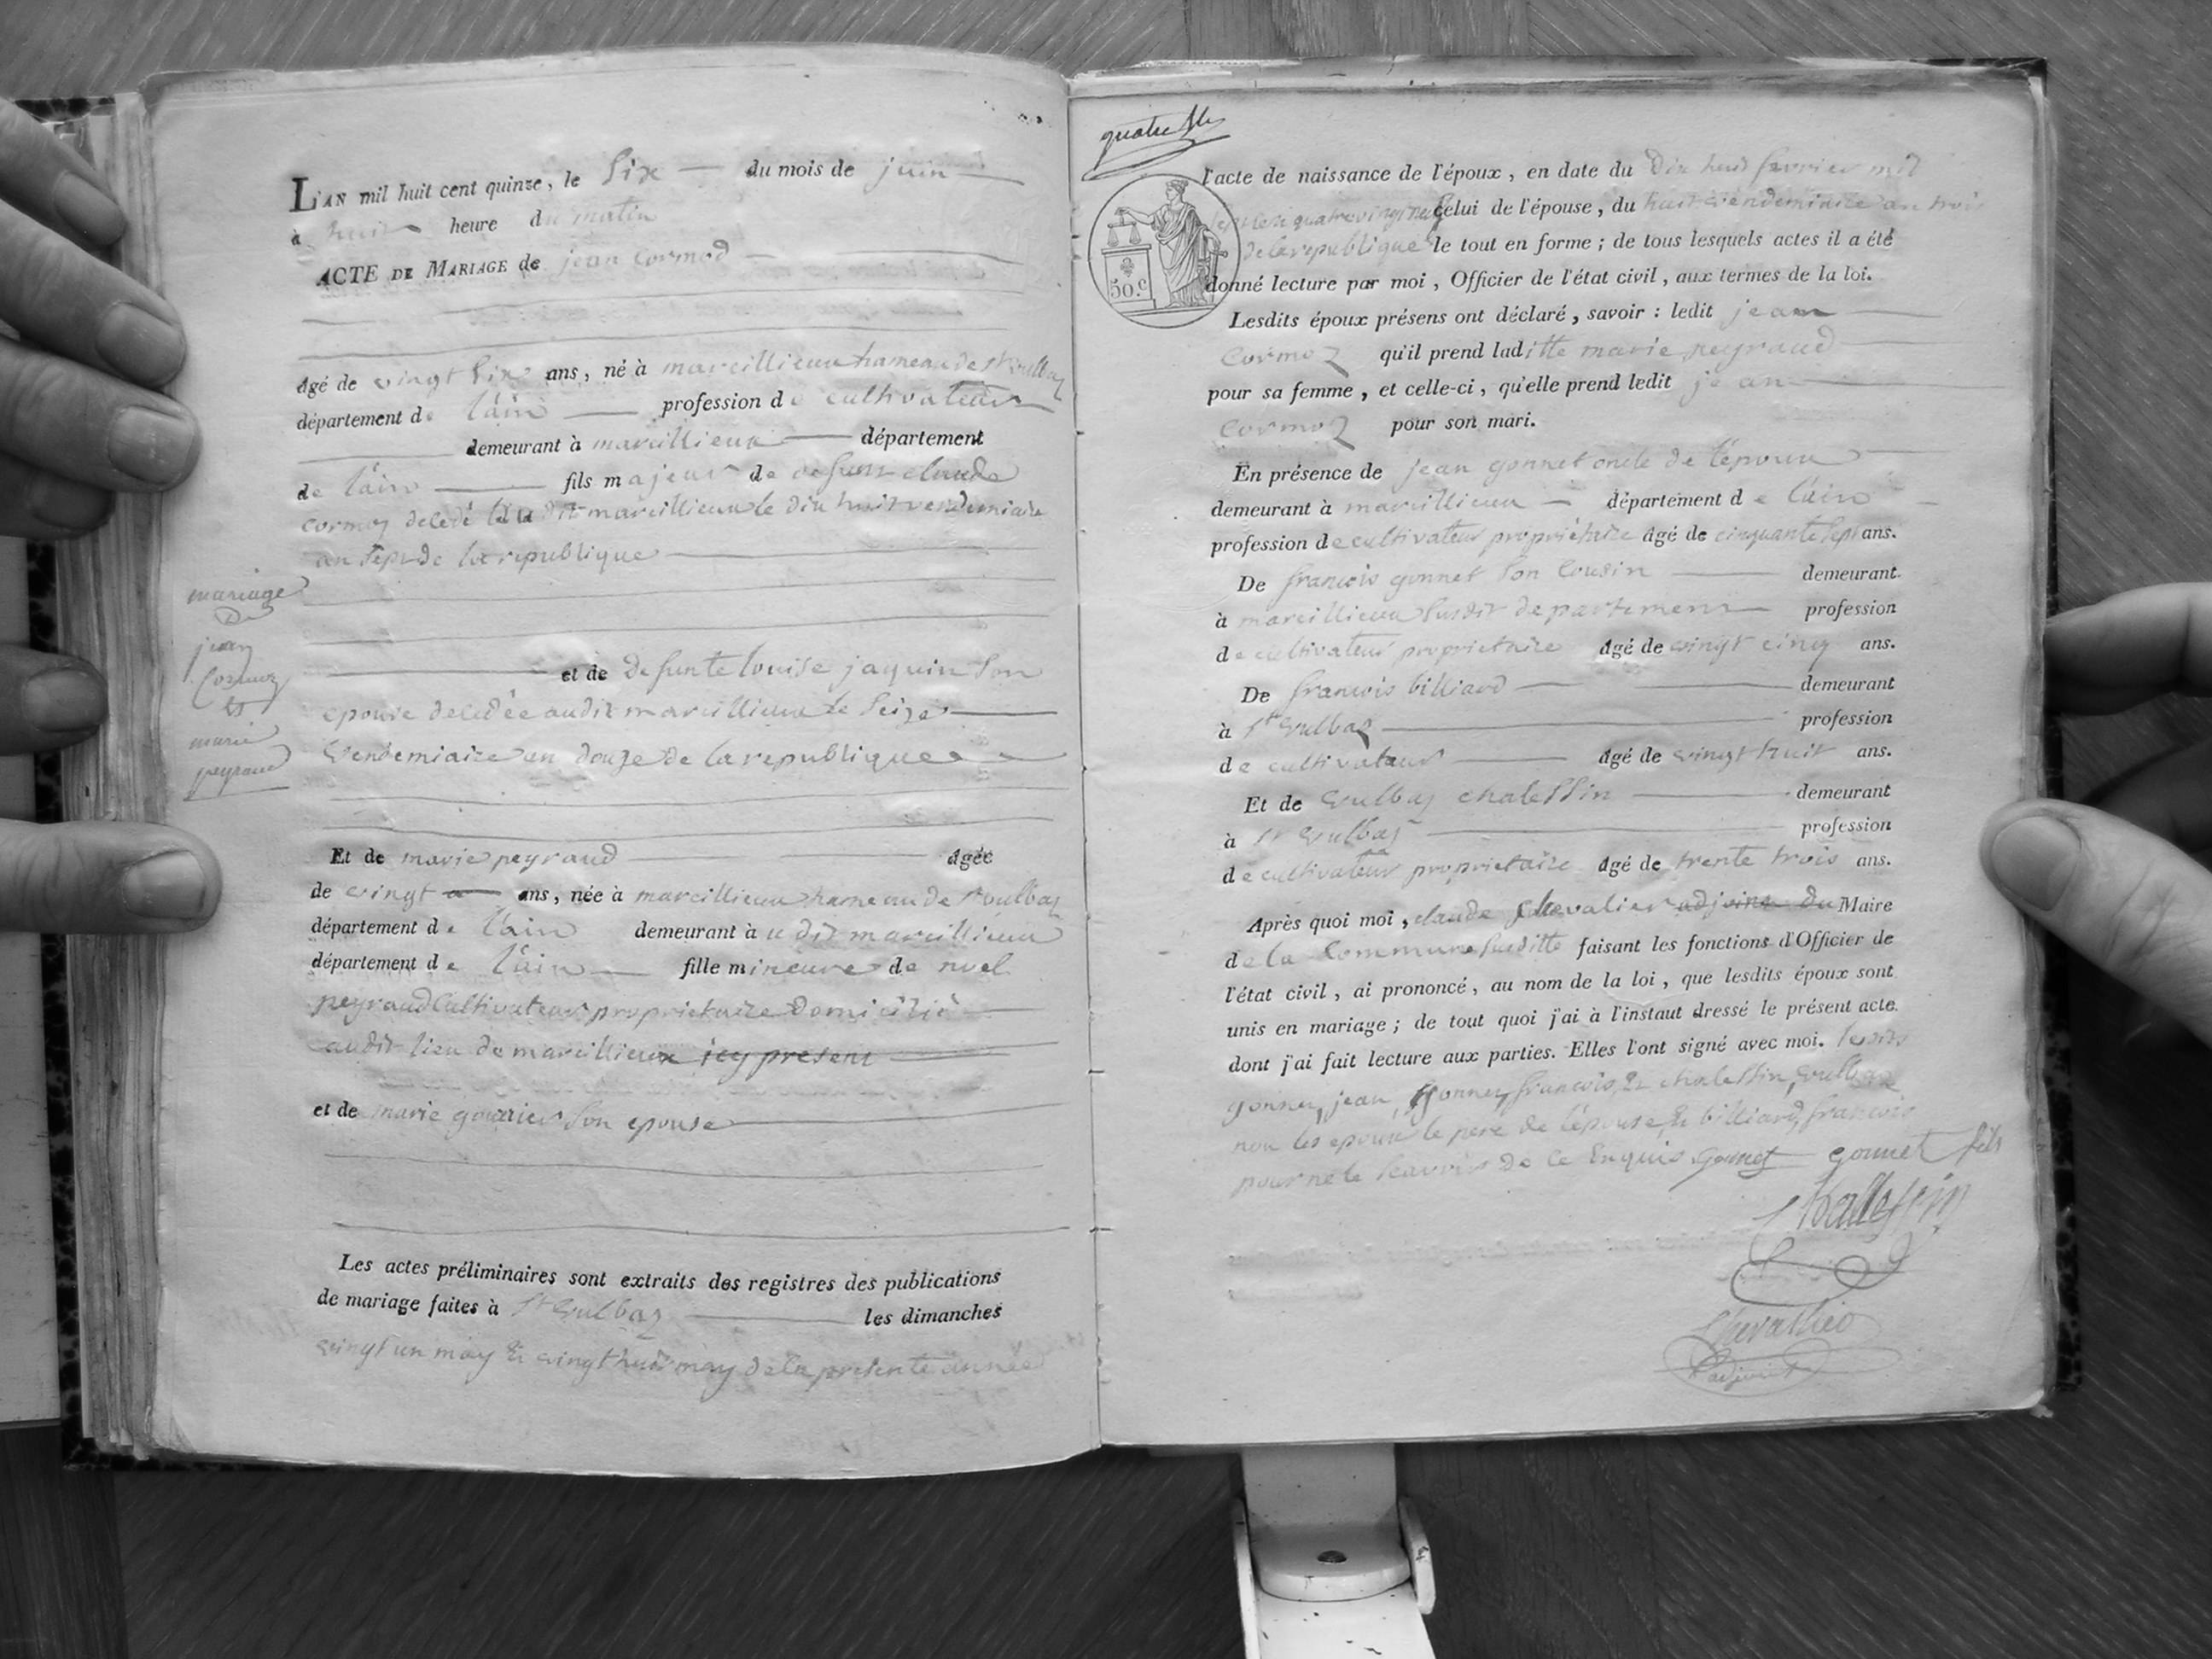 L'AN mil huit cent quinze, le Six du mois de juin
à huit heure du matin
ACTE DE MARIAGE de jean Cormoz
agé de vingt Six ans, né à marcillieux hameau de St Vulbaz
département de l'ain profession de cultivateur
demeurant à marcillieux département
de l'ain fils majeur de defunt claude
cormoz decedé dit marcillieux le dix huit vendemiaire
an sept de la republique
mariage
De
jean
Cormoz
et
marie
peyraud
et de defunte louise jaquin Son
epouse decedée audit marcillieux le Seize
Vendemiaire an douze de la republique
Et de marie peyraud agée
de vingt ans, née à marcillieux hameau de St Vulbaz
département de l'ain demeurant à u dit marcillieux
département de l'ain fille mineure de noel
peyraud Cultivateur proprietaire domicilié
audit lieu de marcillieux icy present
et de marie Son epouse
Les actes préliminaires sont extraits des registres des publications
de mariage faites à St Vulbaz les dimanches
vingt un may & vingt huit may de la presente année
quatre
l'acte de naissance de l'époux, en date du Dix huit fevrier mil
Sept cent quatre vingt neuf celui de l'épouse, du huit vendemiaire an trois
de la republique le tout en forme ; de tous lesquels actes il a été
50.c
donné lecture par moi, Officier de l'état civil, aux termes de la loi.
Lesdits époux présens ont déclaré, savoir : ledit jean
Cormoz qu'il prend laditte marie peyraud
pour sa femme, et celle-ci, qu'elle prend ledit jean
Cormoz pour son mari.
En présence de jean gonnet oncle de l'epoux
demeurant à marcillieux département de l'ain
profession de cultivateur propriétaire âgé de cinquante Sept ans.
De francois gonnet Son Cousin demeurant
à marcillieux Susdit departement profession
de cultivateur proprietaire âgé de vingt cinq ans.
De francois billiard demeurant
à St Vulbaz profession
de cultivateur âgé de vingt huit ans.
Et de Vulbaz chalessin demeurant
à St Vulbaz profession
de cultivateur proprietaire âgé de trente trois ans.
Après quoi moi, claude Chevalier adjoint du Maire
de la Commune Susditte faisant les fonctions d'Officier de
l'état civil, ai prononcé, au nom de la loi, que lesdits époux sont
unis en mariage ; de tout quoi j'ai à l'instaut dressé le présent acte.
dont j'ai fait lecture aux parties. Elles l'ont signé avec moi. lesdits
gonnet, jean, gonnet, francois, & chalessin, Vulbaz
non les epoux le pere de l'épouse, & billiard, francois
pour ne le Scavoir de ce Enquis Gonnet gonnet fils
Challessin
Chevallier
adjoint